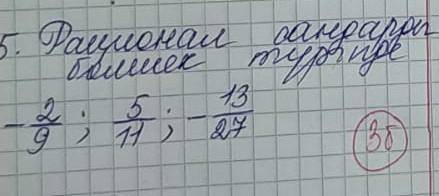 5. Рационал сандарды
бөлшек түрінде
-2/9 ; 5/11 ; -13/27
3б